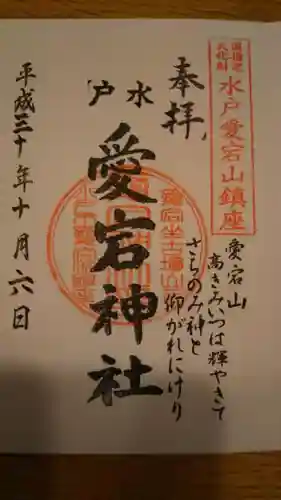 國指定
文化財
水戸愛宕山鎮座
奉拝
水戸
愛宕神社
愛宕山
高きみいつは輝やきて
さちのみ神と
仰がれにけり
平成三十年十月六日